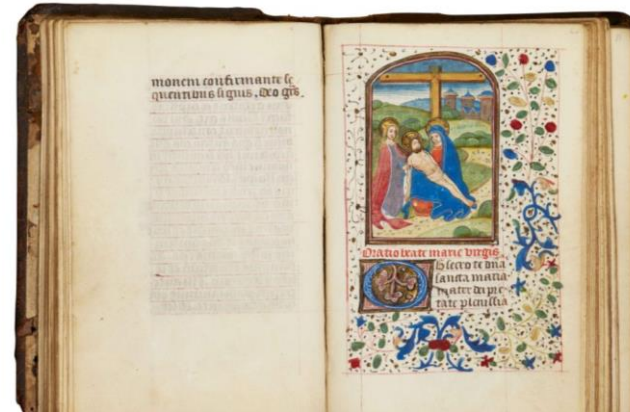 monem confirmante se
quentibus signis. Deo grās.
Oratio beate marie virgīs.
Obsecro te dn̄a
sancta maria
mater dei pie
tate plenissīa